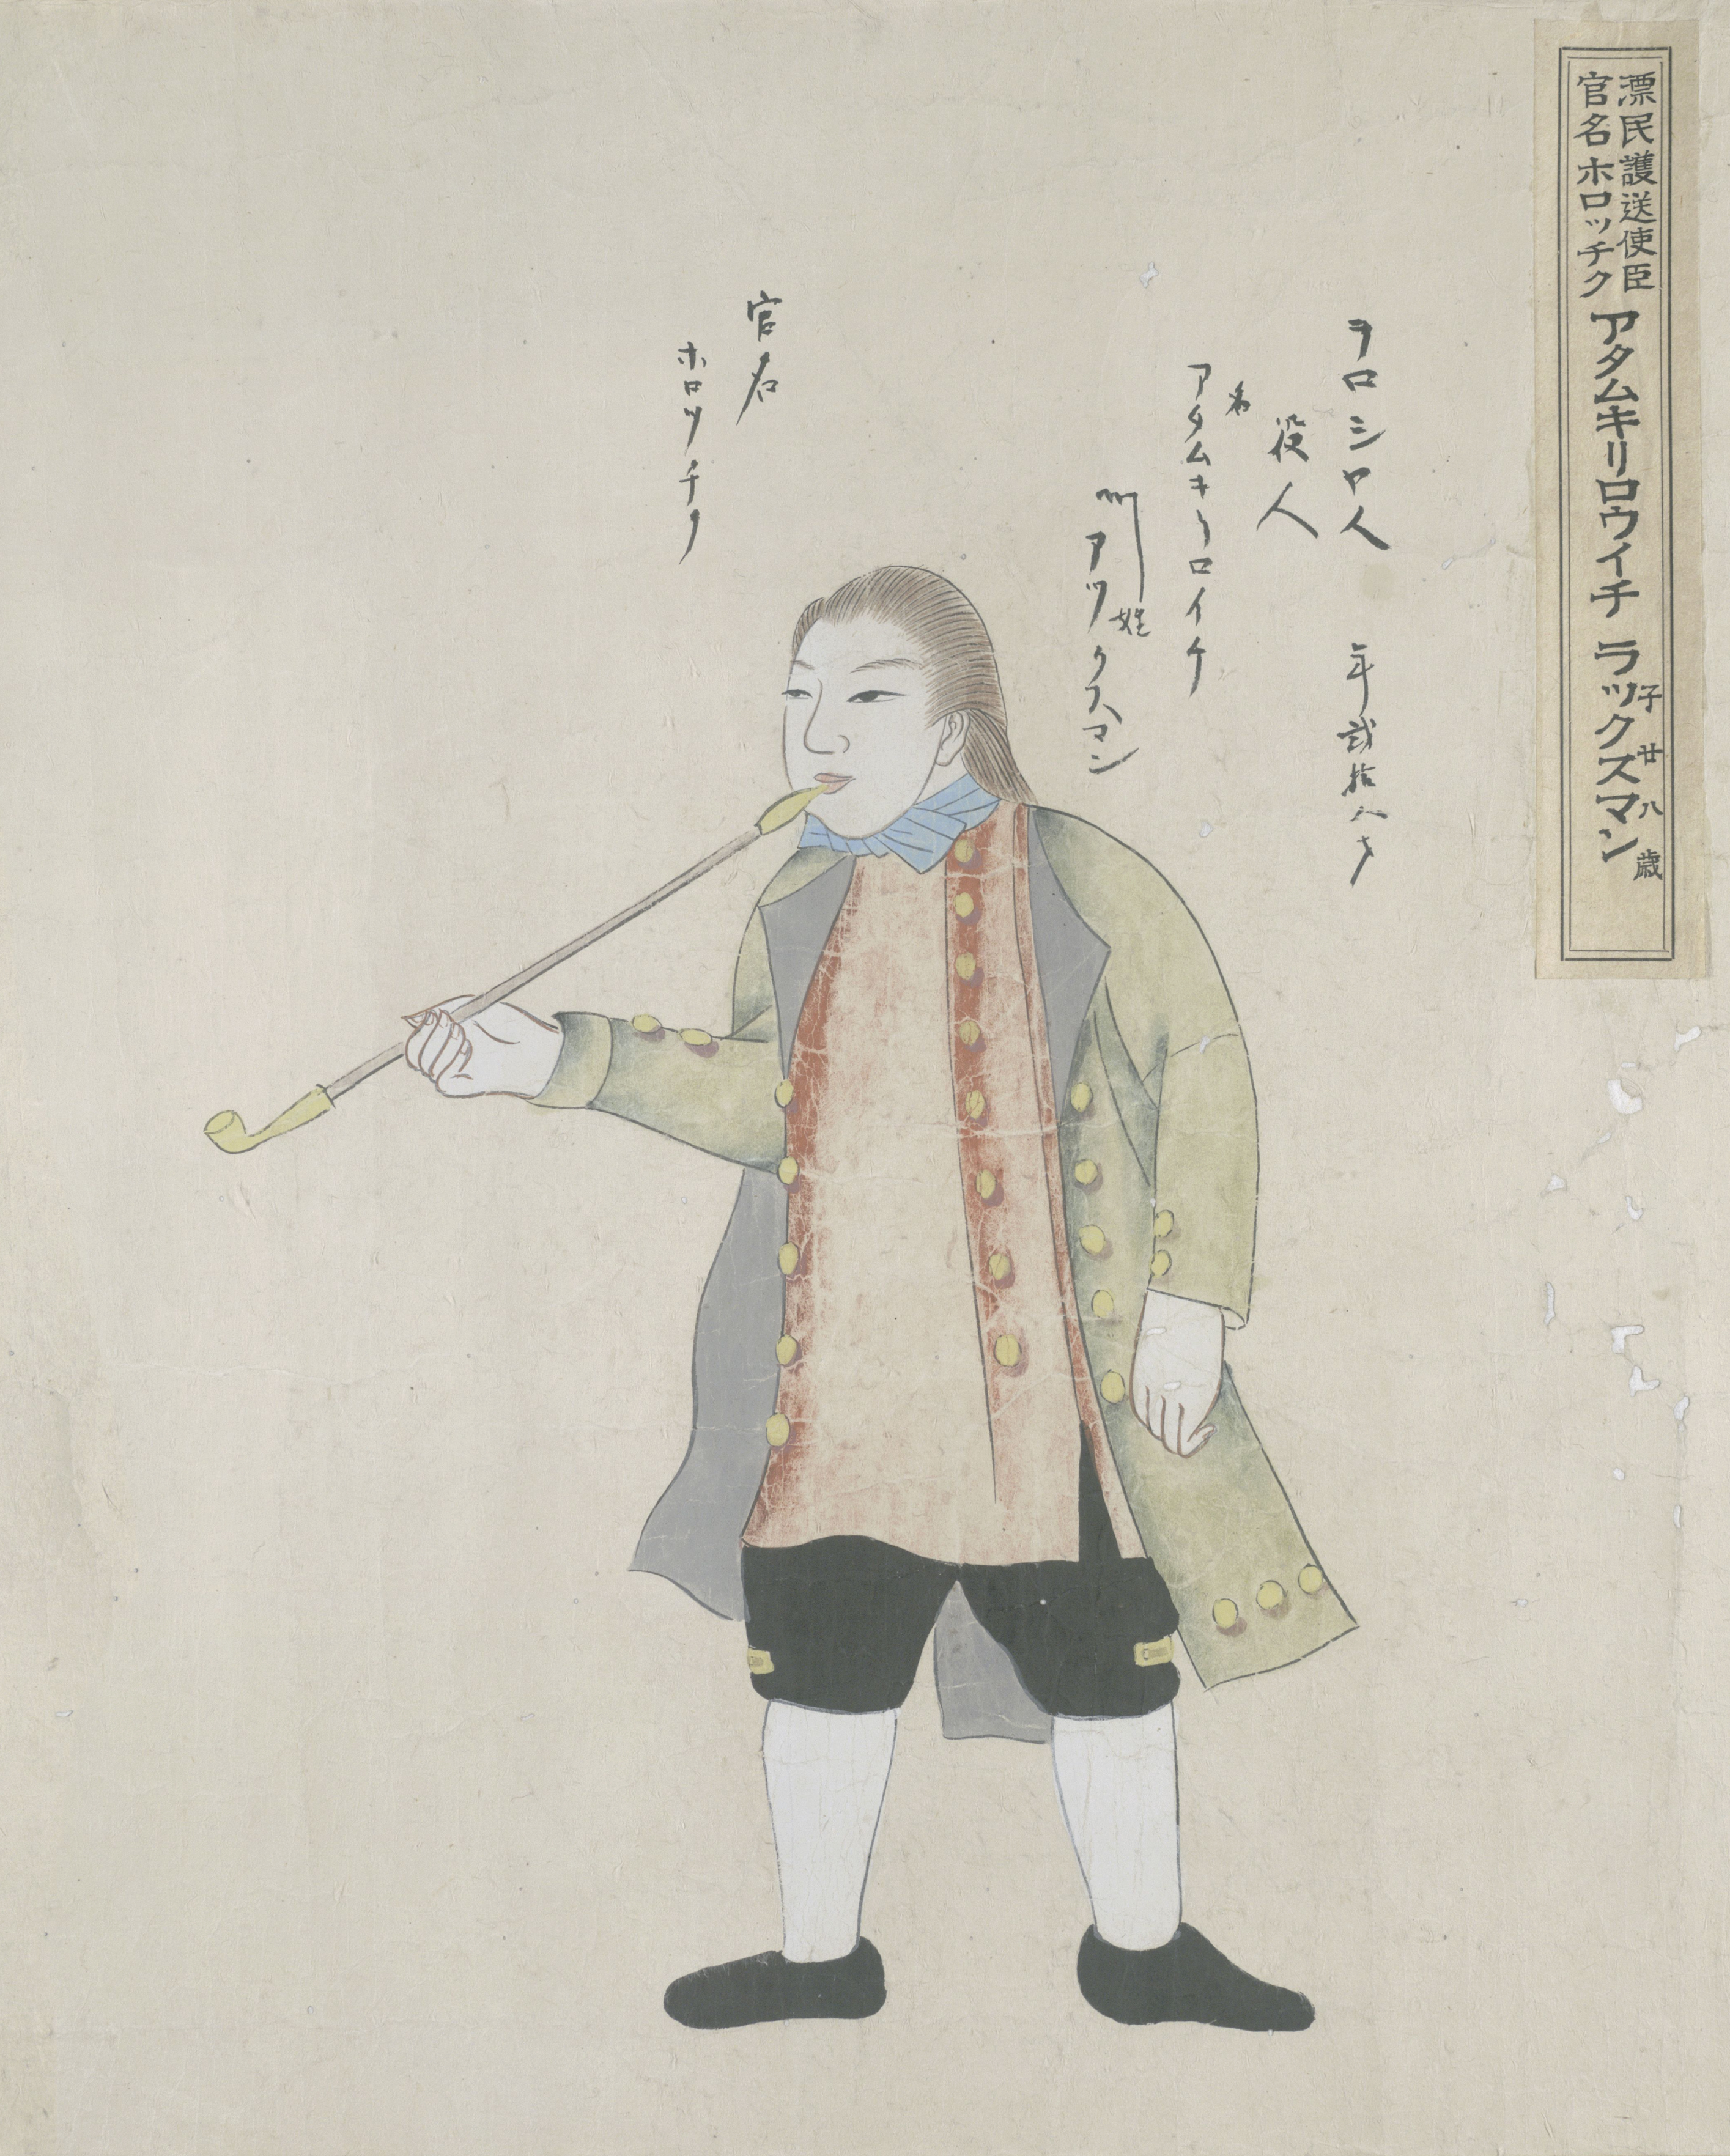 漂民護送使臣
官名 ホロッチク
アタムキリロウイチ ラックスマン
子廿八歳
ヲロシヤ人
年弐拾八才
役人
名
アタムキリロイチ
姓
ラツクスマン
官名
ホロツチク